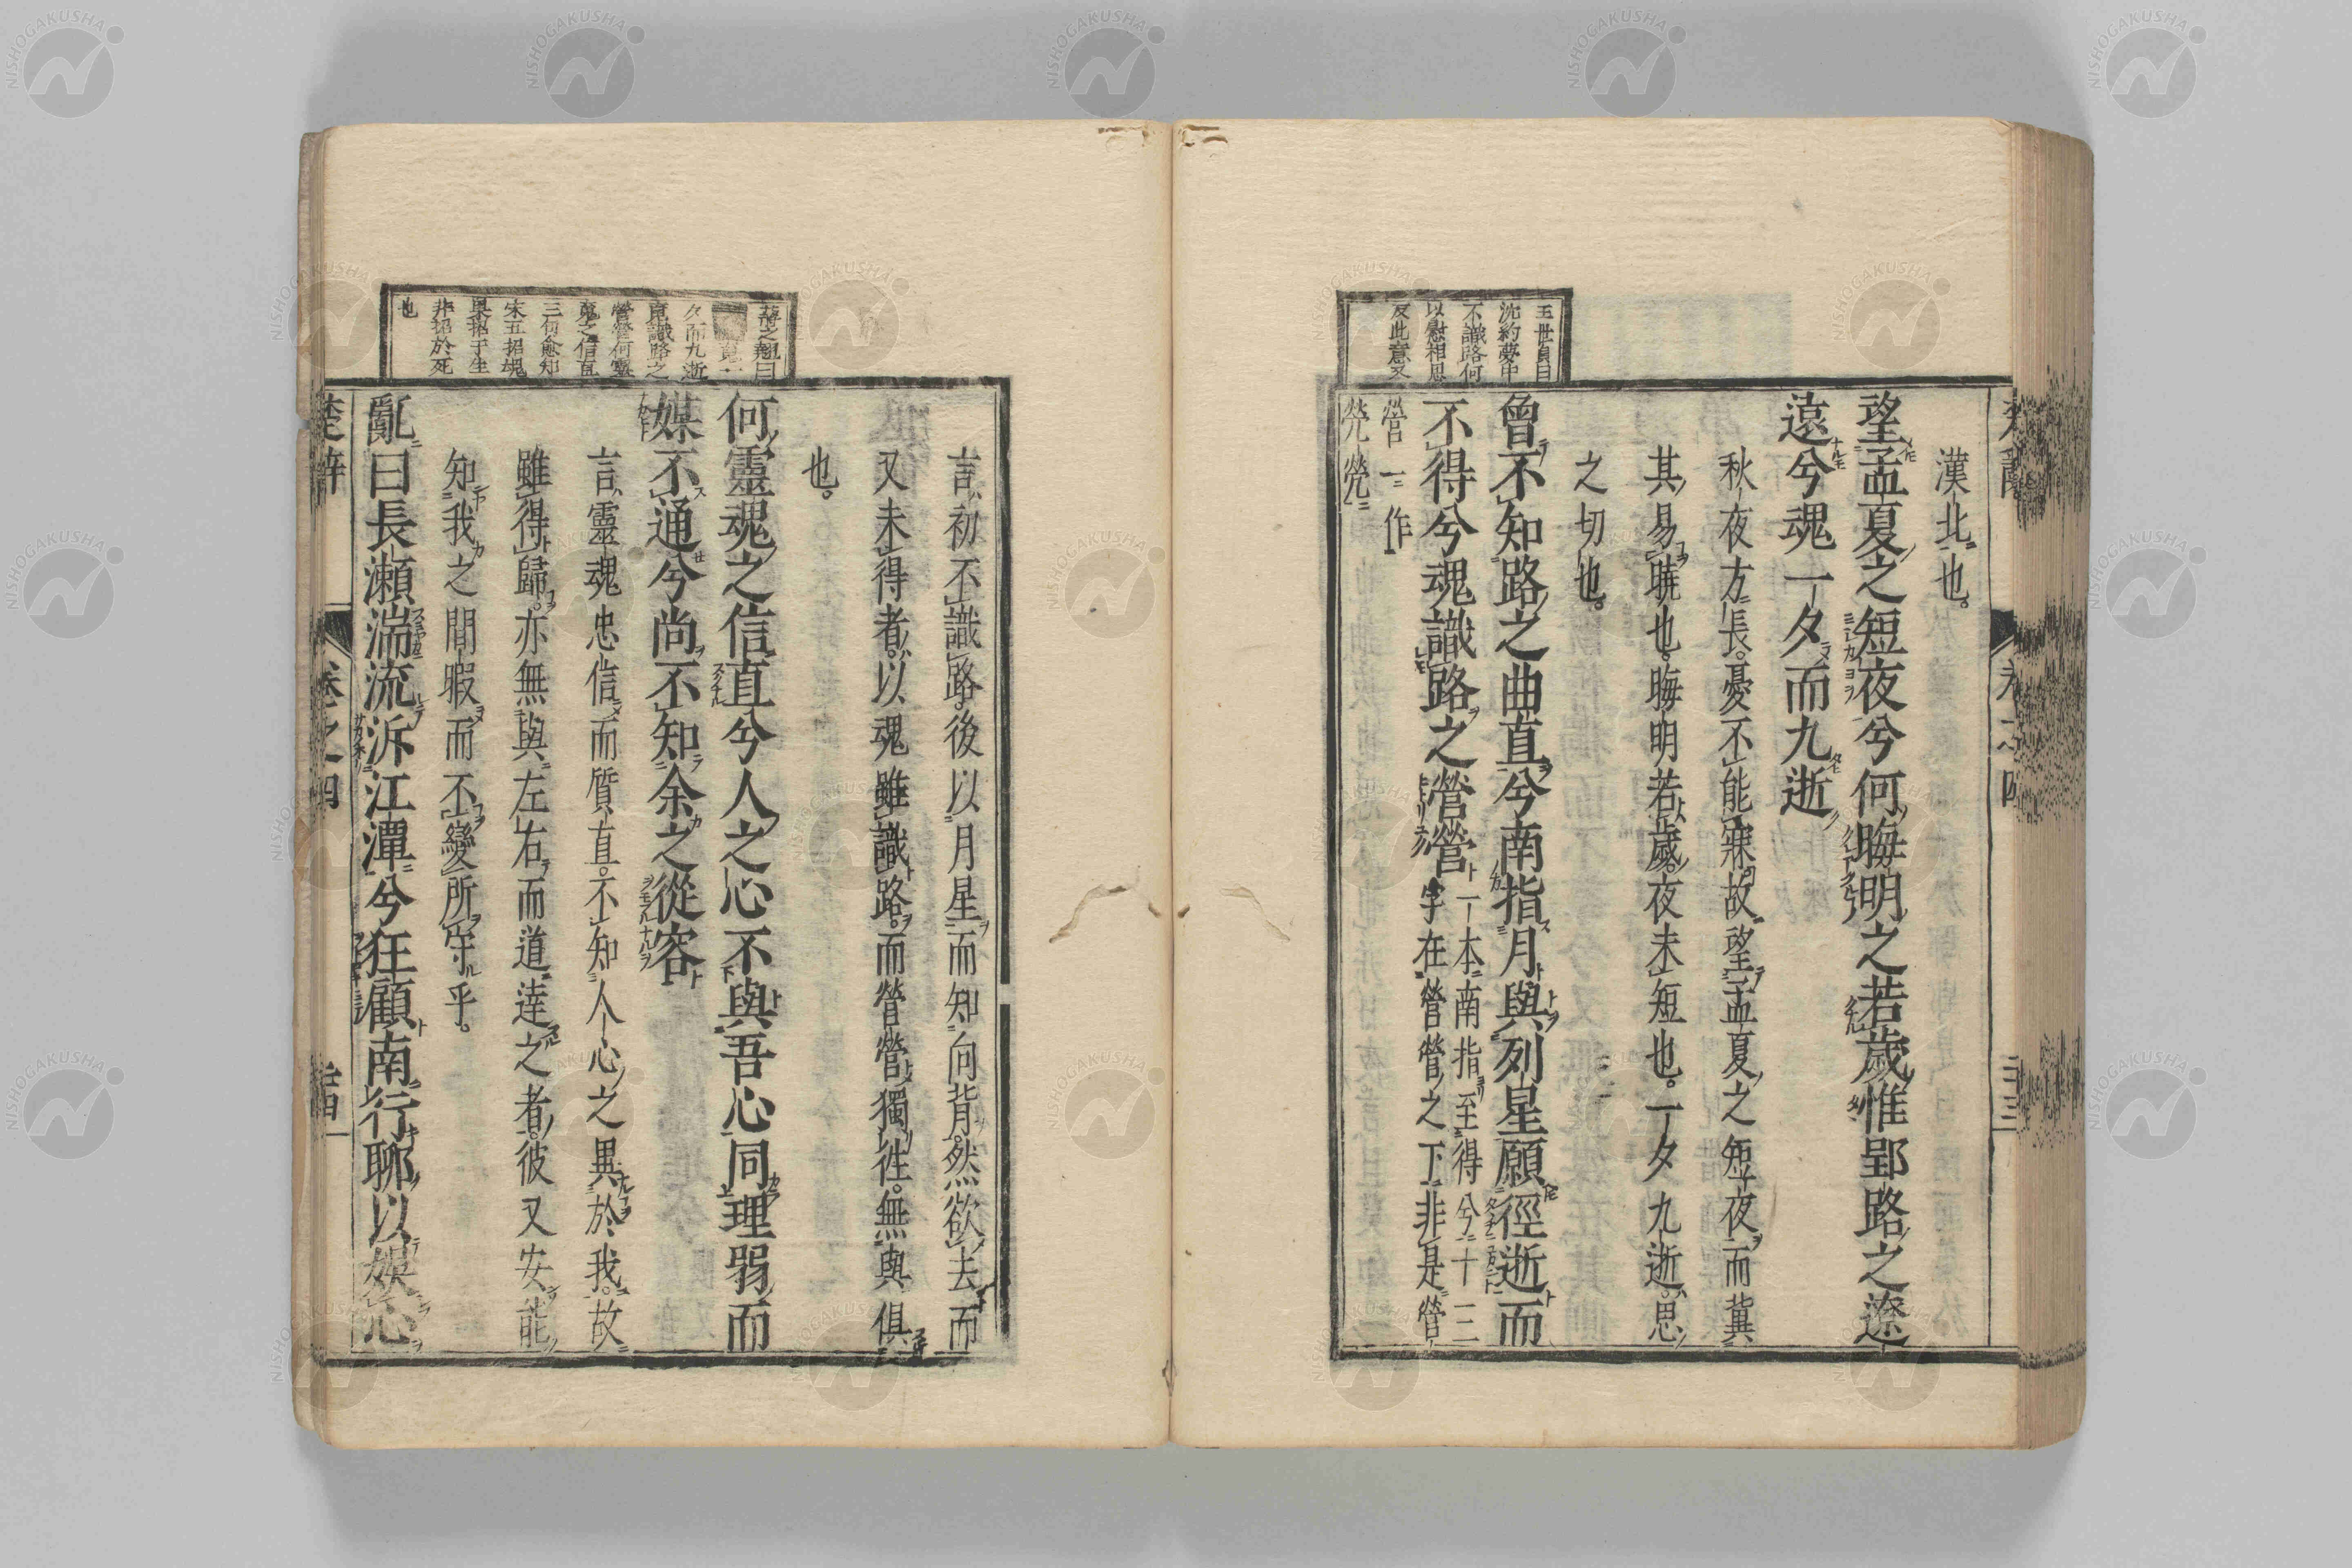 王世貞曰
沈約夢中
不識路何
以慰相思
反此意又
漢北也。
望孟夏之短夜兮何晦明之若歲惟郢路之遼
遠兮魂一夕而九逝
秋夜方長。憂不能寐。故望孟夏之短夜而冀
其易曉也。晦明若歲。夜未短也。一夕九逝。思
之切也。
曾不知路之曲直兮南指月與列星願徑逝而
不得兮魂識路之營營一本南指至得兮十二
字在營營之下非是營
營一作
煢煢
楚辭
卷之四
言初不識路。後以月星而知向背。然欲去而
又未得者。以魂雖識路。而營營獨往。無與俱
也。
何靈魂之信直兮人之心不與吾心同理弱而
媒不通兮尚不知余之從容
言靈魂忠信而質直。不知人心之異於我。故
雖得歸。亦無與左右而道達之者。彼又安能
知我之閒暇而不變所守乎。
亂曰長瀨湍流泝江潭兮狂顧南行聊以娛心
夕而九逝
魂識路之
營營何靈
魂之信直
三何愈知
宋五招魂
果招于生
非招於死
也
NISHOGAKUSHA